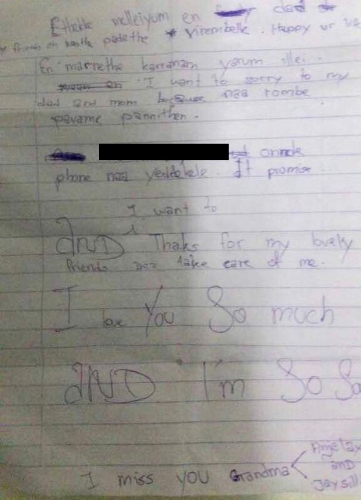 Ethukke velleiyum en dad
friends en kastte padethe Virembelle. Happy ur
En marrethe karranam yarum ille.
I want to sorry to my
dad and mom because naa rombe
pavame pannithen.
phone naa yeddekele. It promise
I want to
AND Thaks for my lovely
friends take care of me.
I love You So much
AND I'm So So
I miss you Grandma
and
Jaysill